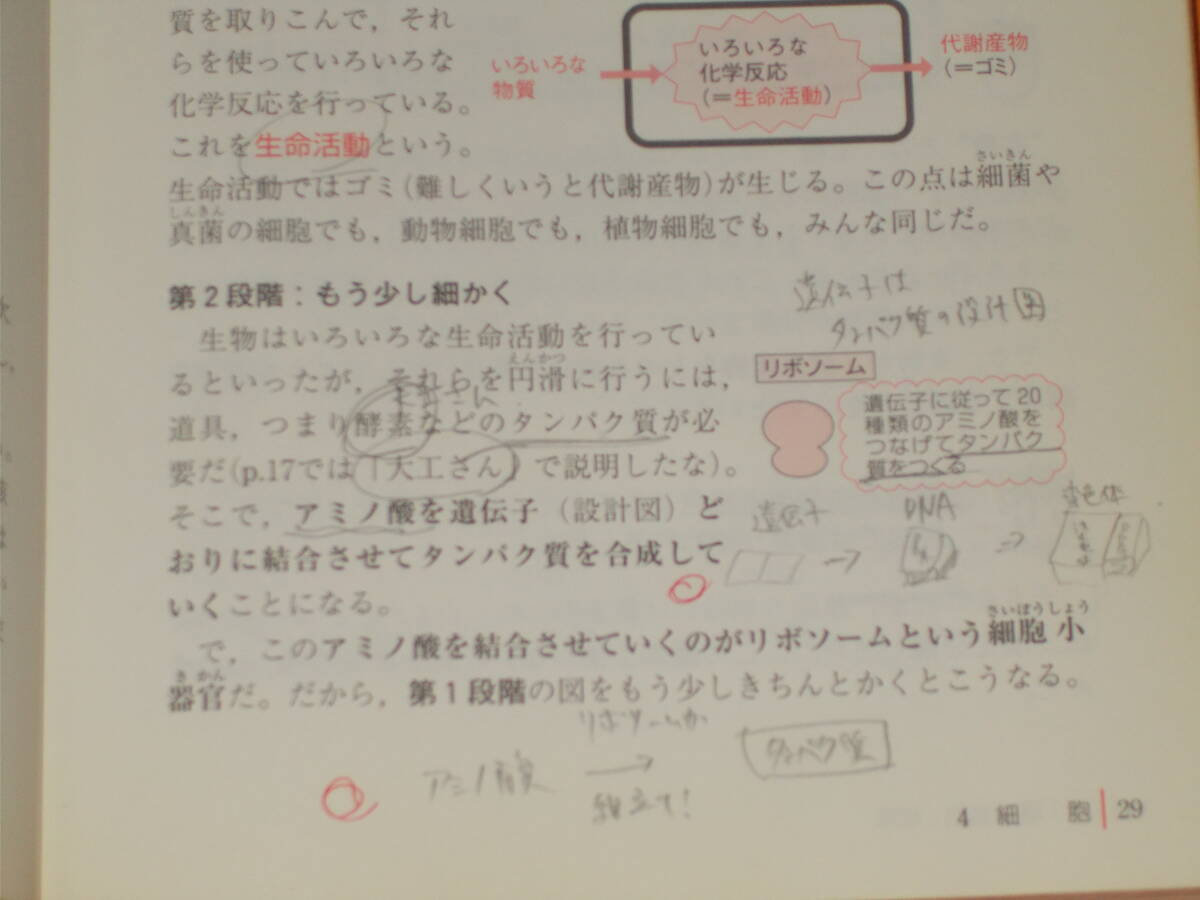 質を取りこんで，それ
らを使っていろいろな
化学反応を行っている。
これを生命活動という。
いろいろな
物質
いろいろな
化学反応
(＝生命活動)
代謝産物
(＝ゴミ)
生命活動ではゴミ(難しくいうと代謝産物)が生じる。この点は細菌や
さいきん
真菌の細胞でも，動物細胞でも，植物細胞でも，みんな同じだ。
しんきん
第2段階：もう少し細かく
生物はいろいろな生命活動を行ってい
るといったが，それらを円滑に行うには，
えんかつ
道具，つまり酵素などのタンパク質が必
要だ(p.17では「大工さん」で説明したな)。
そこで，アミノ酸を遺伝子（設計図）ど
おりに結合させてタンパク質を合成して
いくことになる。
遺伝子は
タンパク質の設計図
リボソーム
遺伝子に従って20
種類のアミノ酸を
つなげてタンパク
質をつくる
遺伝子
DNA
染色体
で，このアミノ酸を結合させていくのがリボソームという細胞小
さいぼうしょう
器官だ。だから，第1段階の図をもう少しきちんとかくとこうなる。
きかん
リボソームが
アミノ酸
組立て！
タンパク質
4 細 胞
29